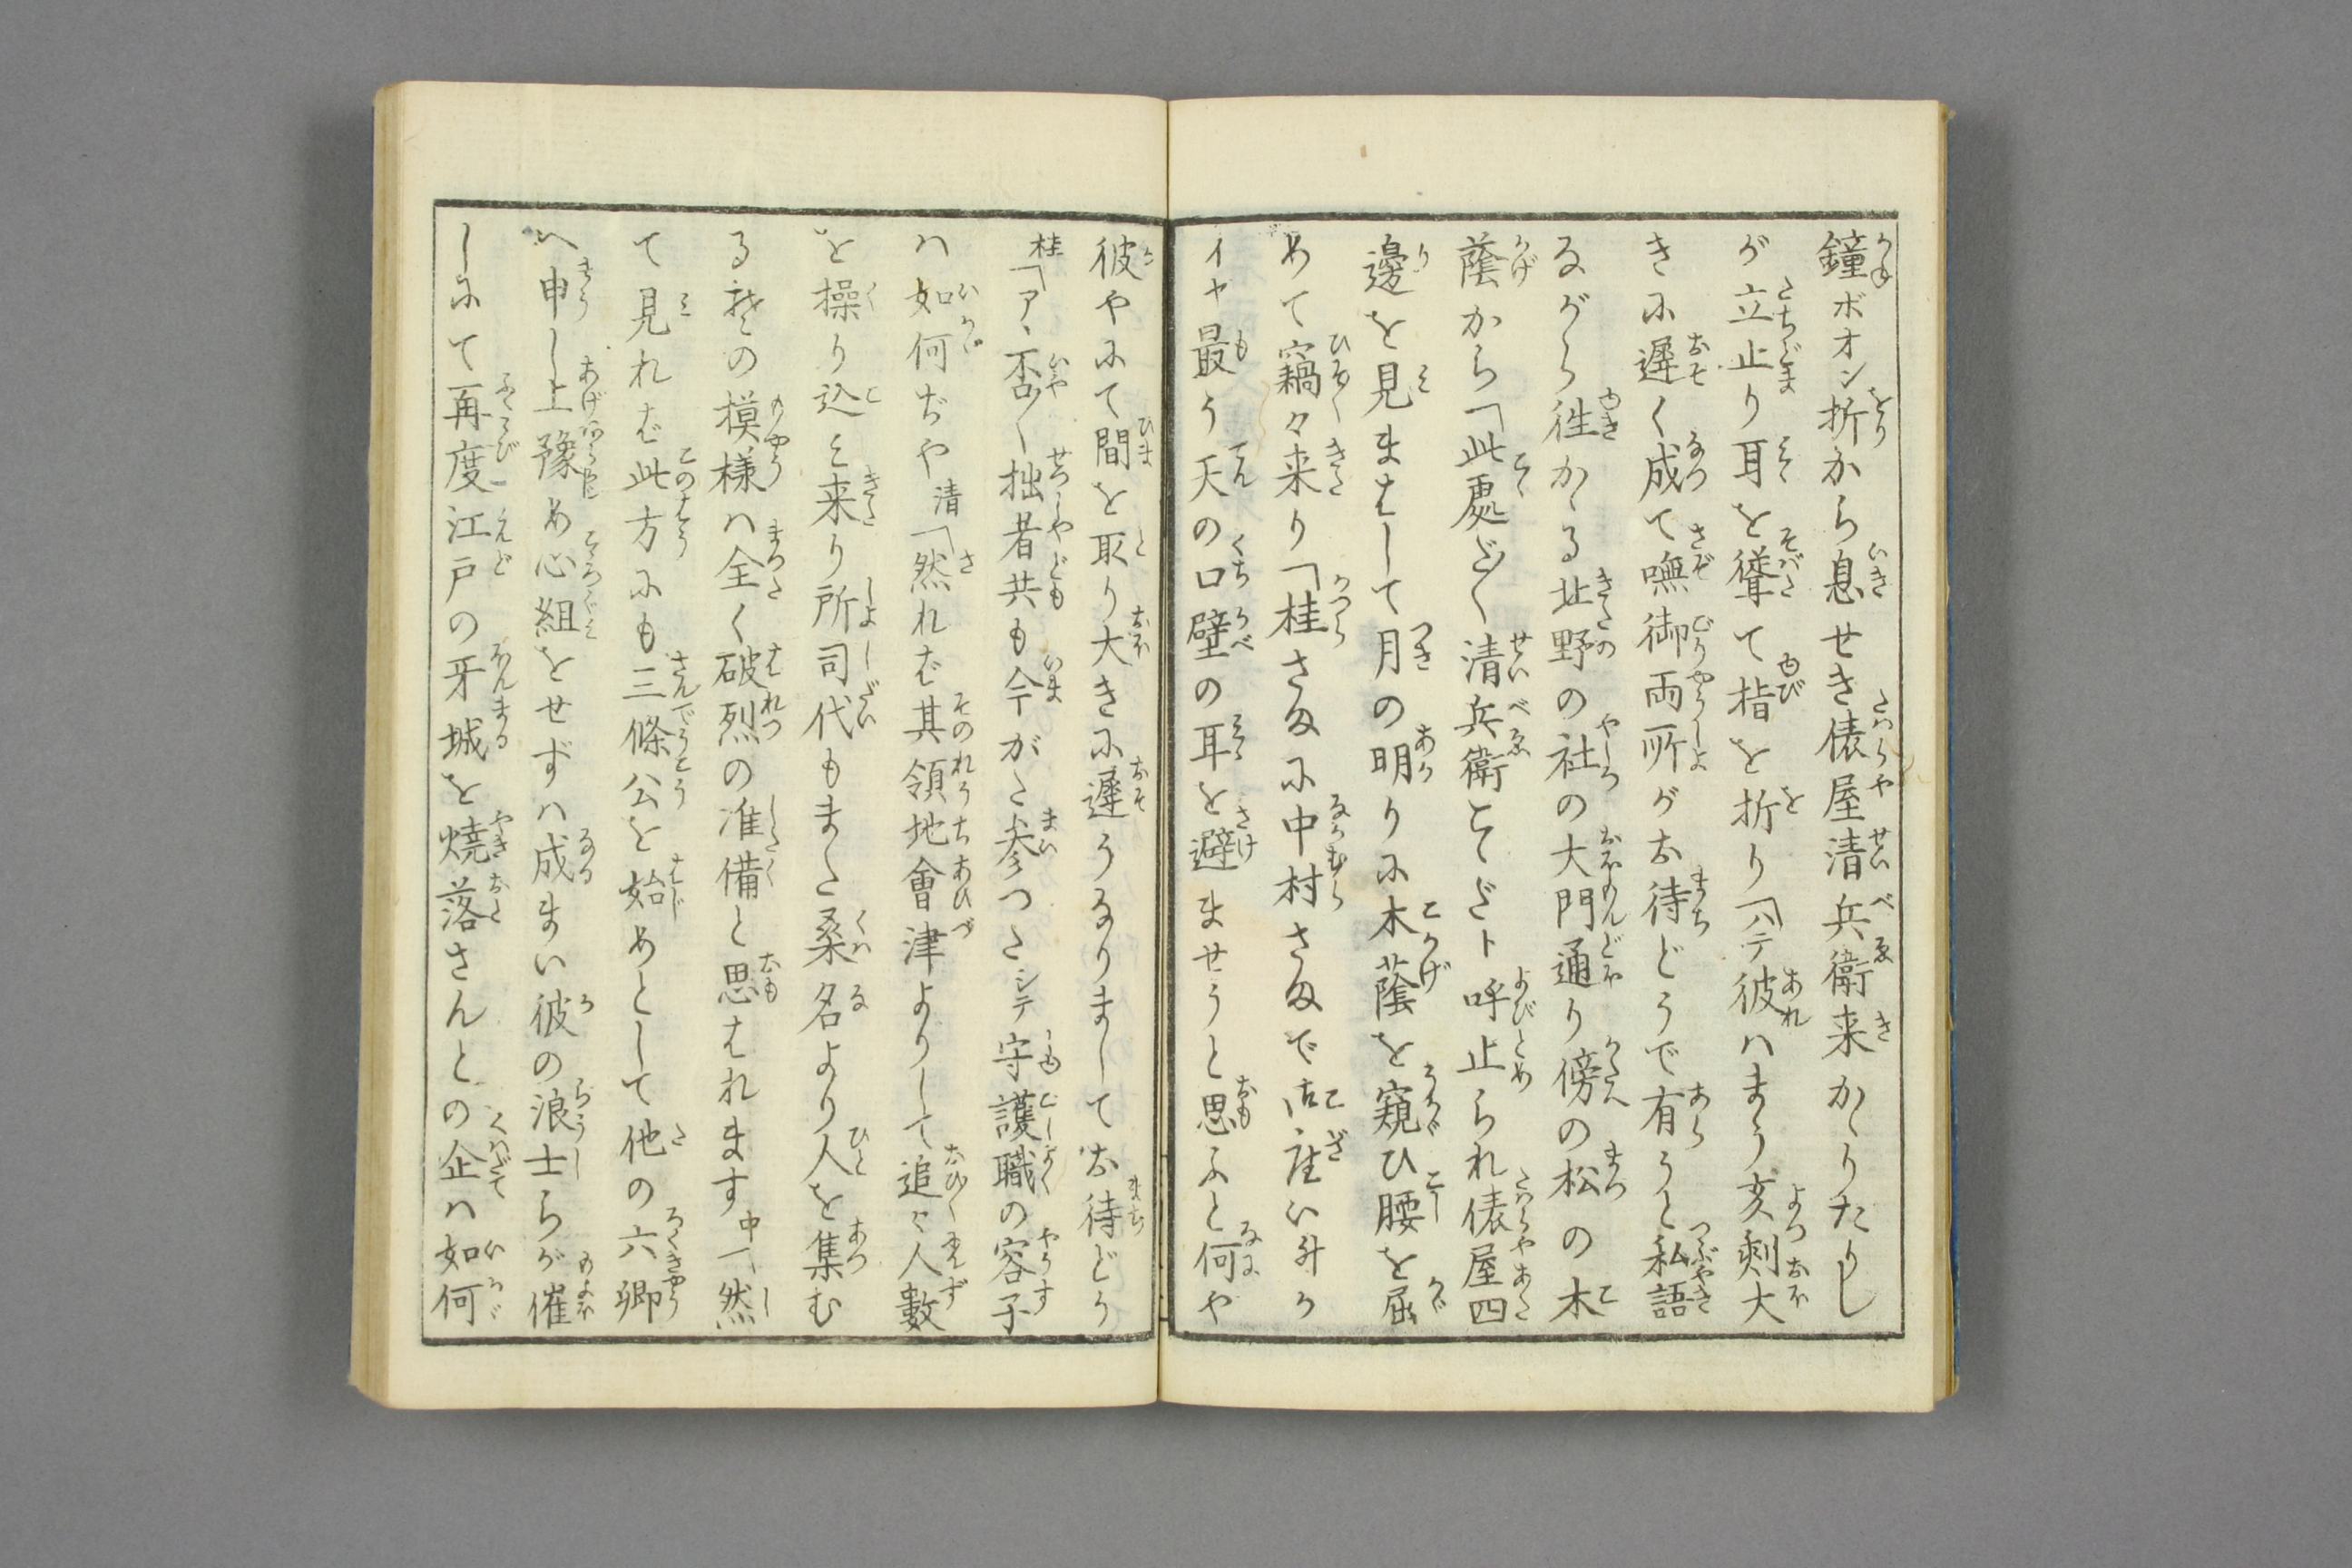 鐘ボオン折から息せき俵屋清兵衛来かゝりたりし
が立止り耳を聳て指を折り「ハテ彼ハまう亥剋大
きに遅く成て嘸御両所がお待どうで有うと私語
ながら徃かゝる北野の社の大門通り傍の松の木
蔭から「此處だ〱清兵衛こゝだト呼止られ俵屋四
邊を見まはして月の明りに木蔭を窺ひ腰を屈
めて竊々来り「桂さまに中村さまで御座い升か
イヤ最う天の口壁の耳を避ませうと思ふと何や
彼やにて間を取り大きに遅うなりましてお待どう
桂「アヽ否〱拙者共も今がた参つたシテ守護職の容子
ハ如何ぢや 清「然れば其領地會津よりして追々人數
を操り込と来り所司代もまた桑名より人を集む
る抔の模様ハ全く破烈の准備と思はれます 中「然
て見れば此方にも三條公を始めとして他の六卿
へ申し上豫め心組をせずハ成まい彼の浪士らが催
しにて再度江戸の牙城を焼落さんとの企ハ如何